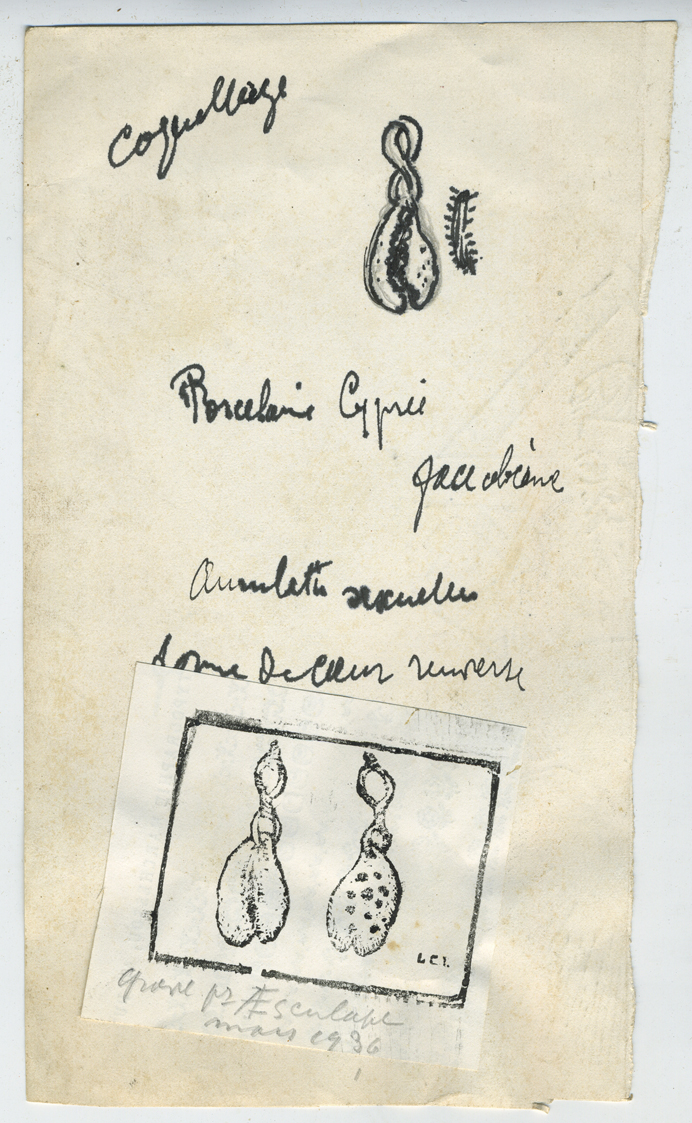 Coquillage
Porcelaine Cyprée
Jaccobéane
Amulettes sexuelles
forme de cœur renversé
L.C.I.
gravé pr Æsculape
mars 1936